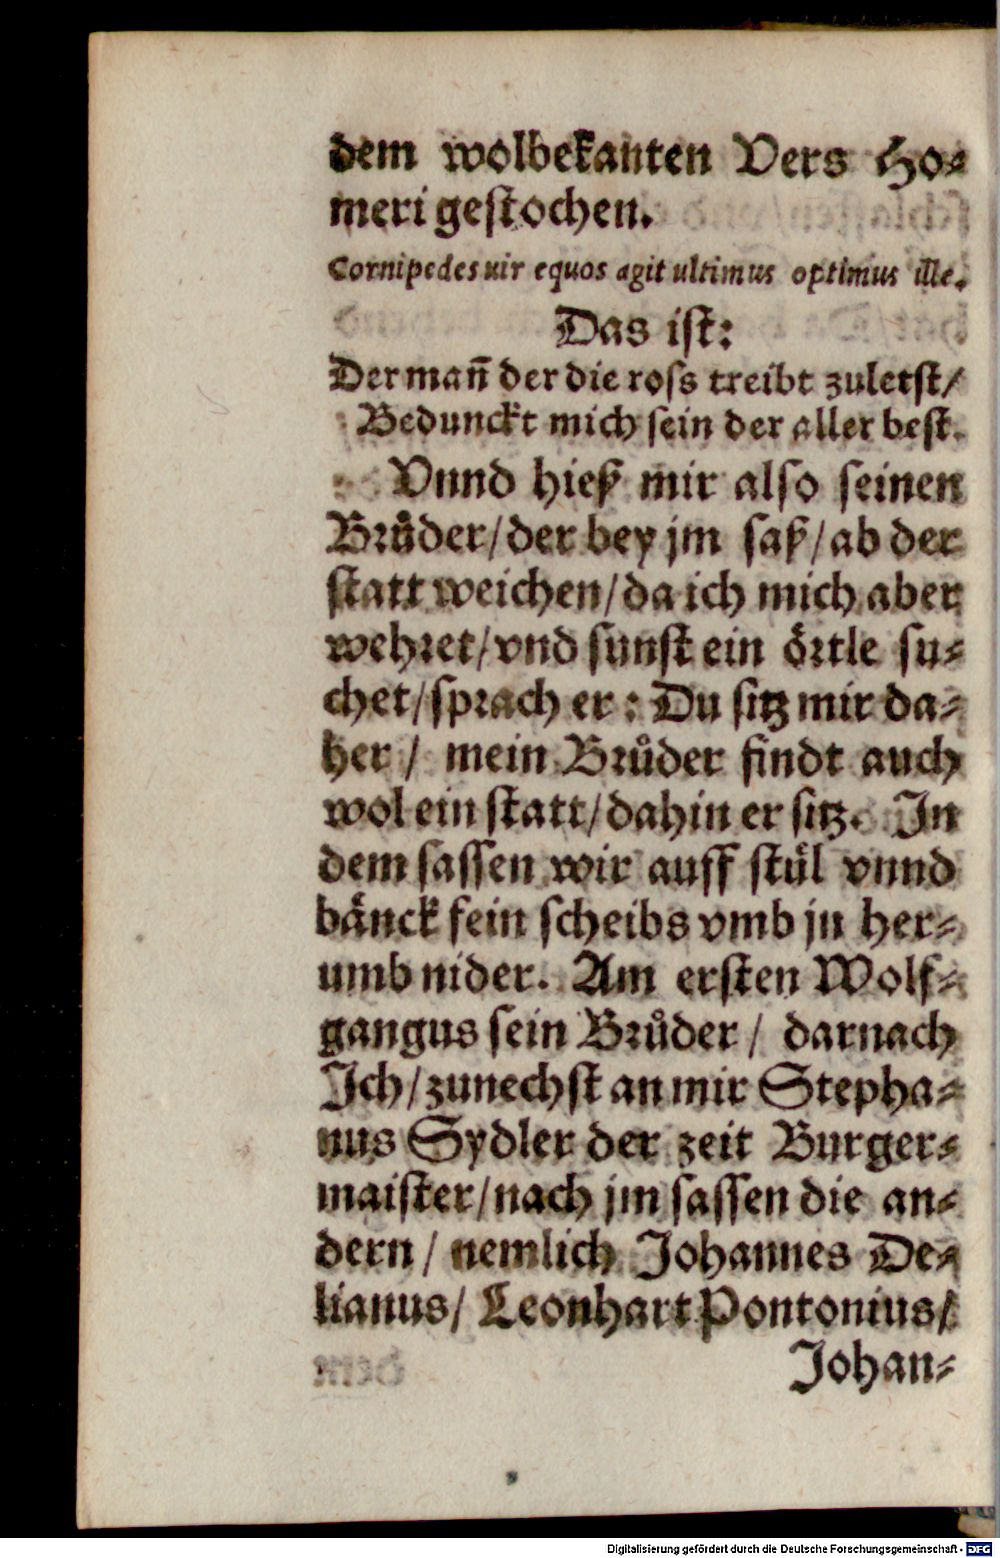 dem wolbekanten Vers Ho⸗
meri gestochen.
Cornipedes uir equos agit ultimus optimus ille.
Das ist:
Der mañ der die ross treibt zuletst/
Bedunckt mich sein der aller best.
Vnnd hieß mir also seinen
Brůder/der bey jm saß/ab der
statt weichen/da ich mich aber
wehret/vnd sunst ein örtle su⸗
chet/sprach er: Du sitz mir da⸗
her/ mein Brůder findt auch
wol ein statt/dahin er sitz. In
dem sassen wir auff stůl vnnd
bänck fein scheibs vmb jn her⸗
umb nider. Am ersten Wolf⸗
gangus sein Brůder/ darnach
Ich/zunechst an mir Stepha⸗
nus Sydler der zeit Burger⸗
maister/nach jm sassen die an⸗
dern/ nemlich Johannes De⸗
lianus/ Leonhart Pontonius/
Johan⸗
Digitalisierung gefördert durch die Deutsche Forschungsgemeinschaft - DFG